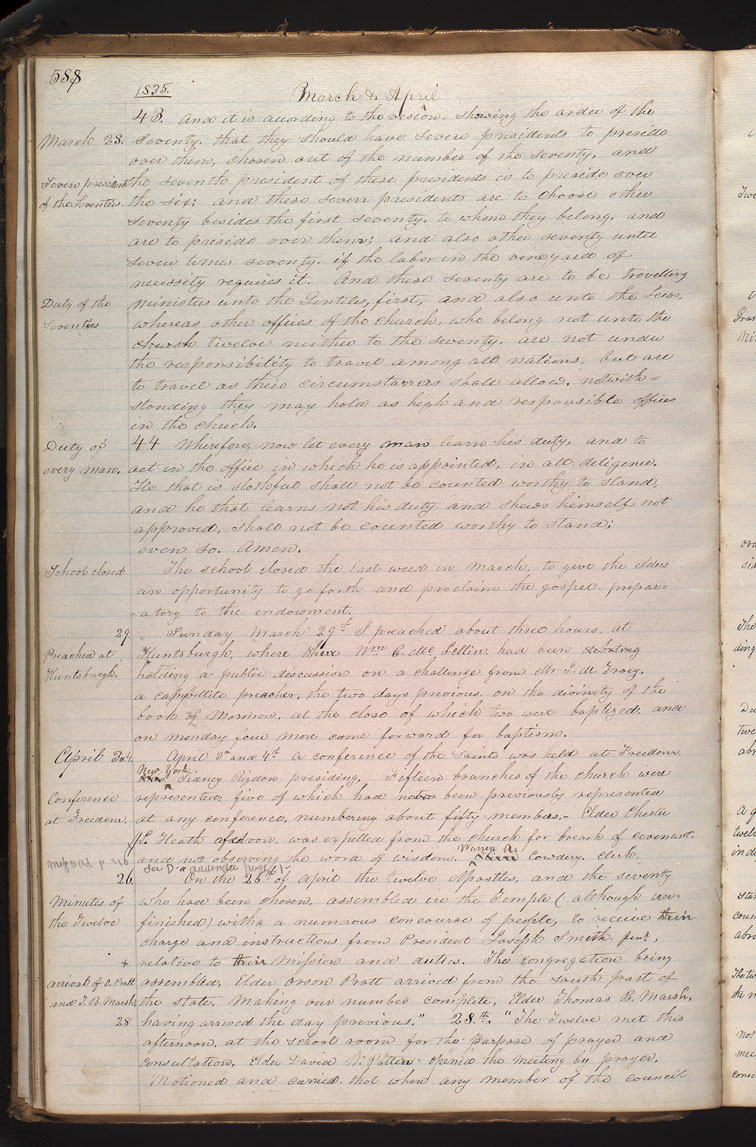 588
1835.
March & April
43. And it is acording to the vision. showing the order of the
March 28. Seventy. that they should have seven presidents to preside
over them, chosen out of the number of the seventy. and
Seven presidents the seventh president of these presidents is to preside over
of the Seventies. the six; and these seven presidents are to choose other
seventy besides the first seventy, to whom they belong. and
are to preside over them; and also other seventy until
seven times seventy. if the labor in the vineyard of
necessity requires it. And these seventy are to be travelling
Duty of the ministers unto the Gentiles, first, and also unto the Jews,
Seventies whereas other offices of the church, who belong not unto the
church twelve neither to the seventy. are not under
the responsibility to travel among all nations, but are
to travel as their circumstances shall allow, notwith-
standing they may hold as high and responsible offices
in the church.
Duty of 44 Wherefore, now let every man learn his duty, and to
every man. act in the office in which he is appointed, in all deligence.
He that is slothful shall not be counted worthy to stand,
and he that learns not his duty and shews himself not
approved, shall not be counted worthy to stand;
even so. Amen.
School closed The school closed the last week in March, to give the elders
an opportunity to go forth and proclaim the gospel. prepar-
atory to the endowment.
29. Sunday March 29th I preached about three hours. at
Preached at Huntsburgh, where Wm E. Mc. Lellin. had been
Huntsburgh. holding a public discussion on a challenge from Mr J. M. Tracy.
a campellite preacher, the two days previous. on the divinity of the
book of Mormon, at the close of which two were baptized. and
on monday four more came forward for baptism.
April 3&4. April 3rd and 4th A conference of the saints was held at Freedom
New York. Sidney Rigdon presiding. Fifteen branches of the church were
Conference represented, five of which had not been previously represented
at Freedom. at any conference, numbering about fifty members.- Elder Chester
L. Heath of Avon, was expelled from the church for breach of covenant.
and not observing the word of wisdom. Warren A. Cowdery. Clerk.
See addenda page 1
26. On the 26th of April the twelve Apostles, and the seventy
Minutes of who had been chosen, assembled in the Temple (although un-
the Twelve finished) with a numerous concourse of people, to receive their
charge and instructions from President Joseph Smith Junr,
+ relative to their mission and duties. The congregation being
arrival of O. Pratt assembled, Elder Orson Pratt arrived from the south part of
and T. B. Marsh. the state, making our number complete, Elder Thomas B. Marsh,
28 having arrived the day previous." 28.th. "The Twelve met this
afternoon, at the school room for the purpose of prayer and
consultation. Elder David W. Patten opened the meeting by prayer.
Motioned and carried. that when any member of the council